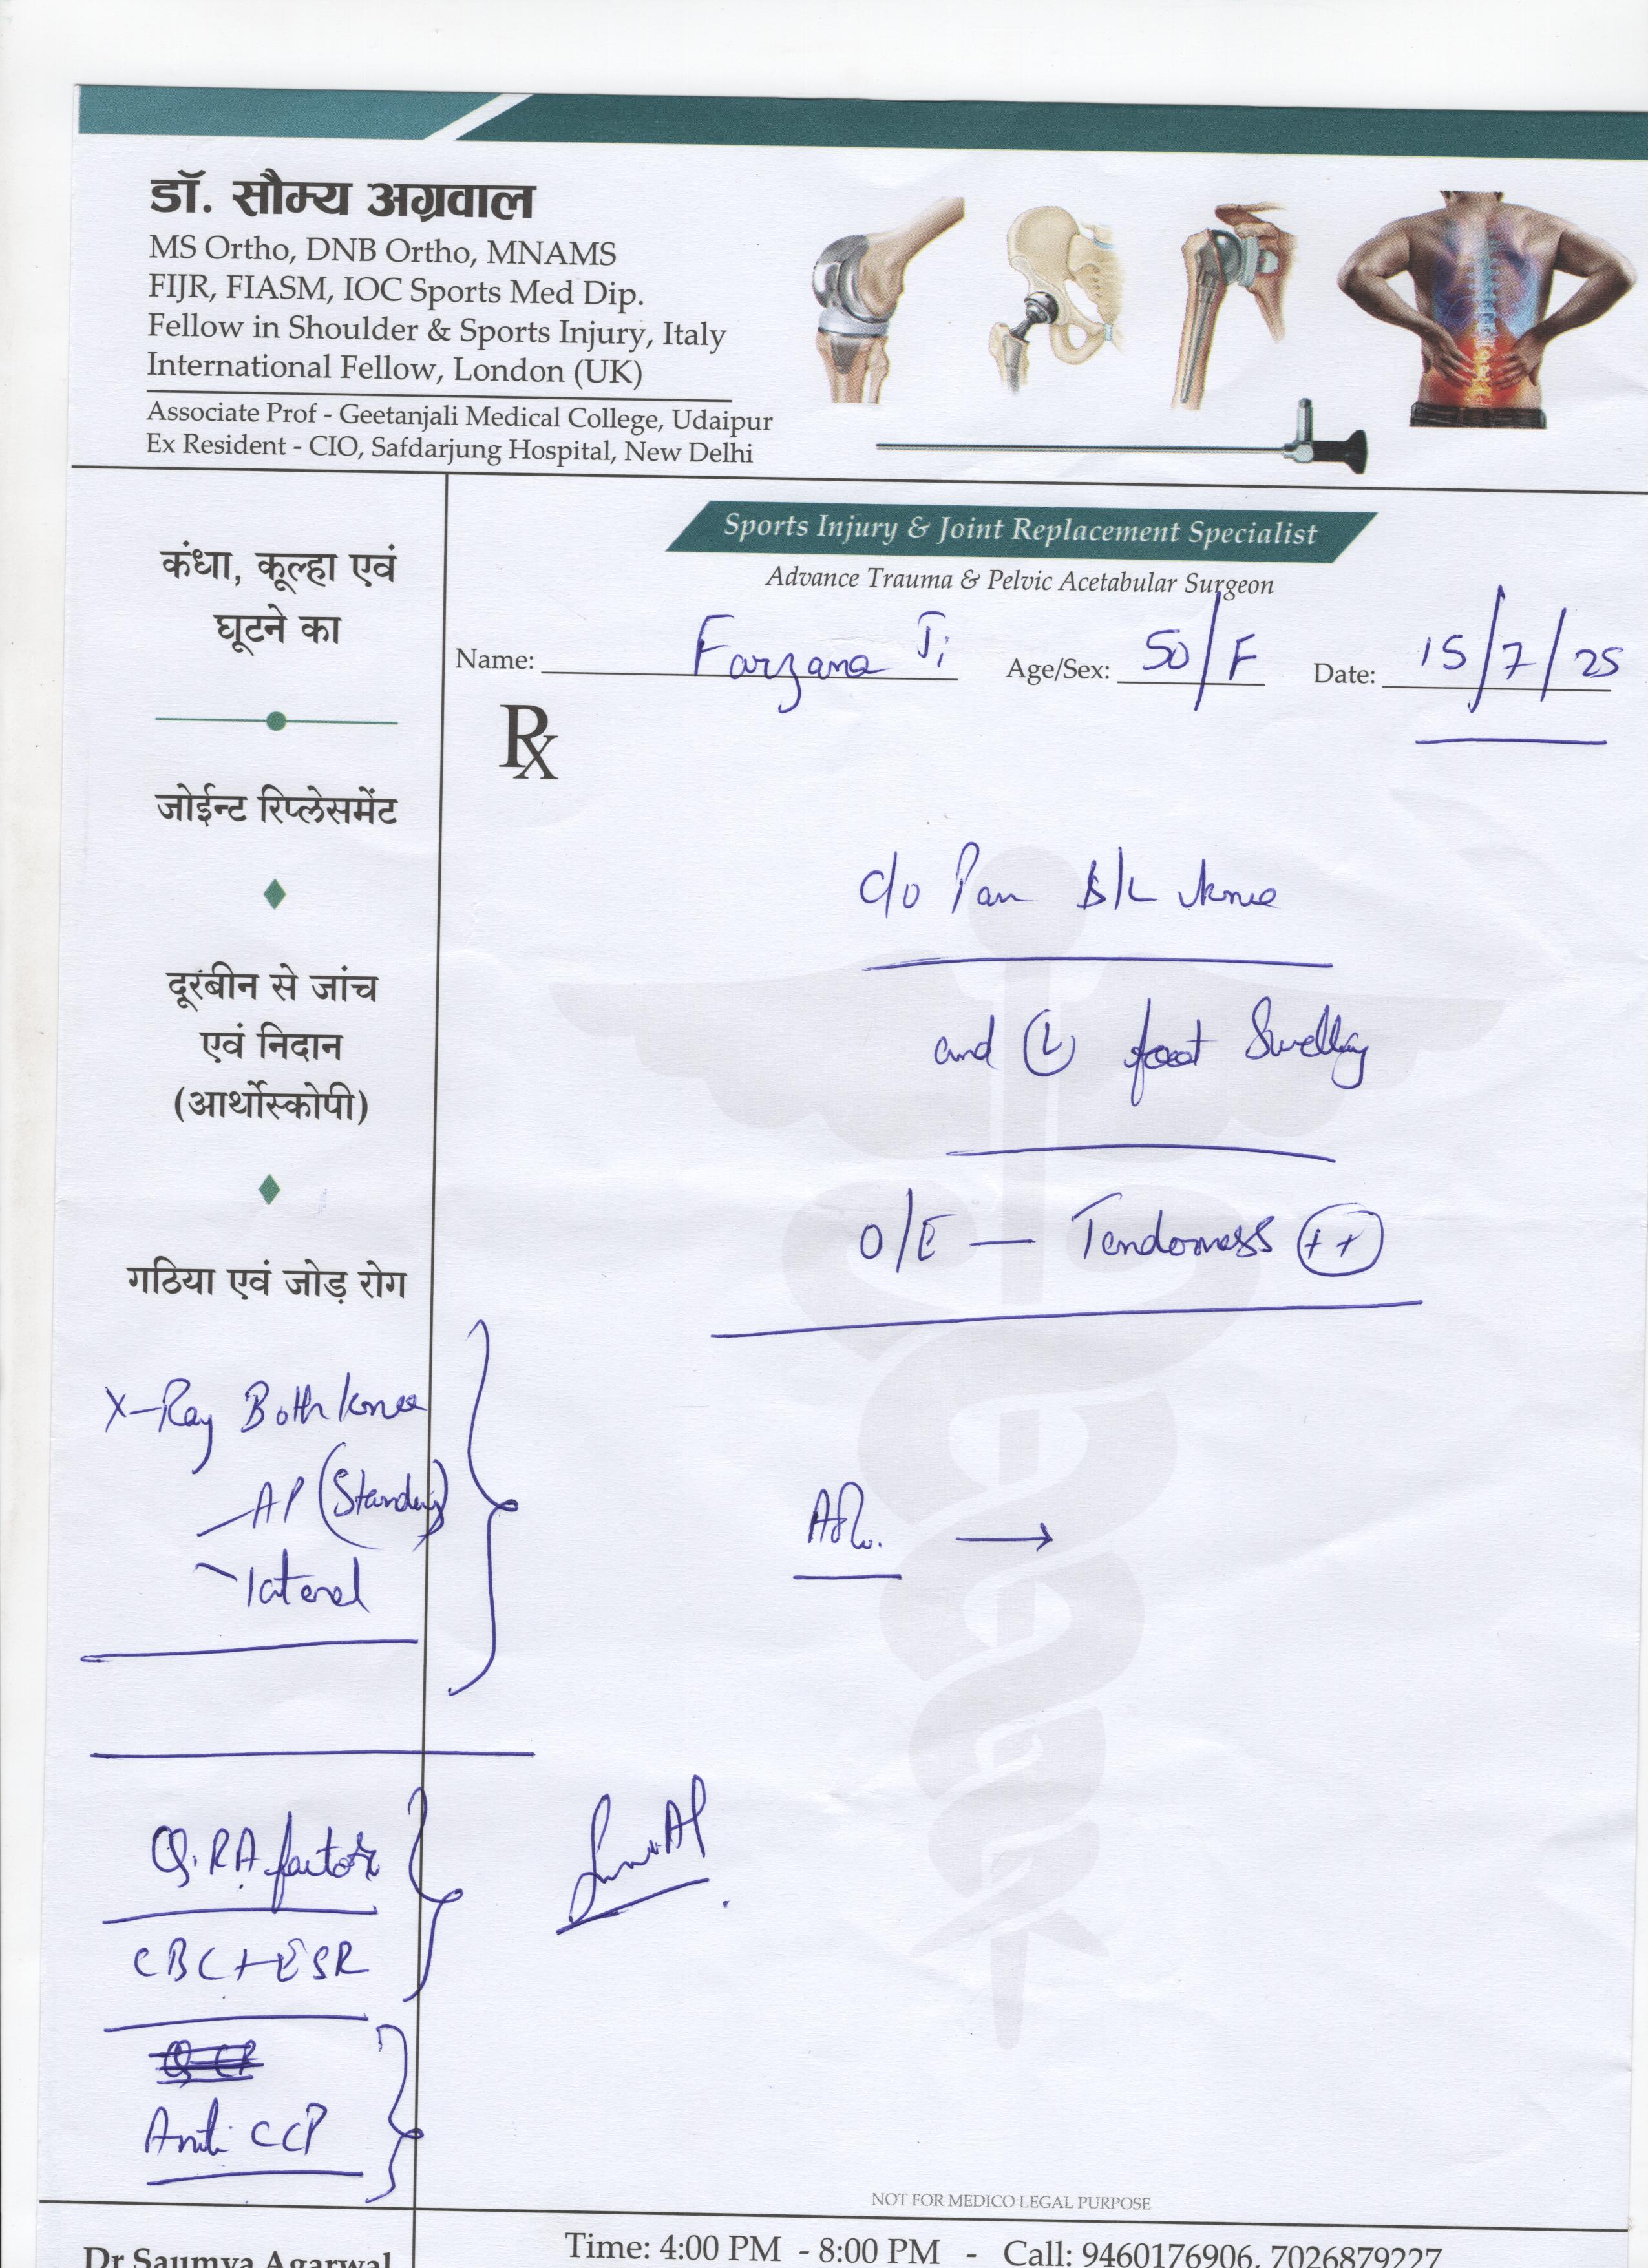 डॉ. सौम्य अग्रवाल
MS Ortho, DNB Ortho, MNAMS
FIJR, FIASM, IOC Sports Med Dip.
Fellow in Shoulder & Sports Injury, Italy
International Fellow, London (UK)
Associate Prof - Geetanjali Medical College, Udaipur
Ex Resident - CIO, Safdarjung Hospital, New Delhi
Sports Injury & Joint Replacement Specialist
Advance Trauma & Pelvic Acetabular Surgeon
Name: Farzana Ji Age/Sex: 50/F Date: 15/7/25
Rx
कंधा, कूल्हा एवं
घूटने का
जोईन्ट रिप्लेसमेंट
दूरबीन से जांच
एवं निदान
(आर्थोस्कोपी)
गठिया एवं जोड़ रोग
c/o Pain B/L knee
and (L) foot Swelling
O/E — Tenderness (++)
X-Ray Both knee
AP (Standing)
lateral
→
Q. RA factor
CBC + ESR
Anti CCP
NOT FOR MEDICO LEGAL PURPOSE
Dr Saumya Agarwal
Time: 4:00 PM - 8:00 PM - Call: 9460176906, 7026879227